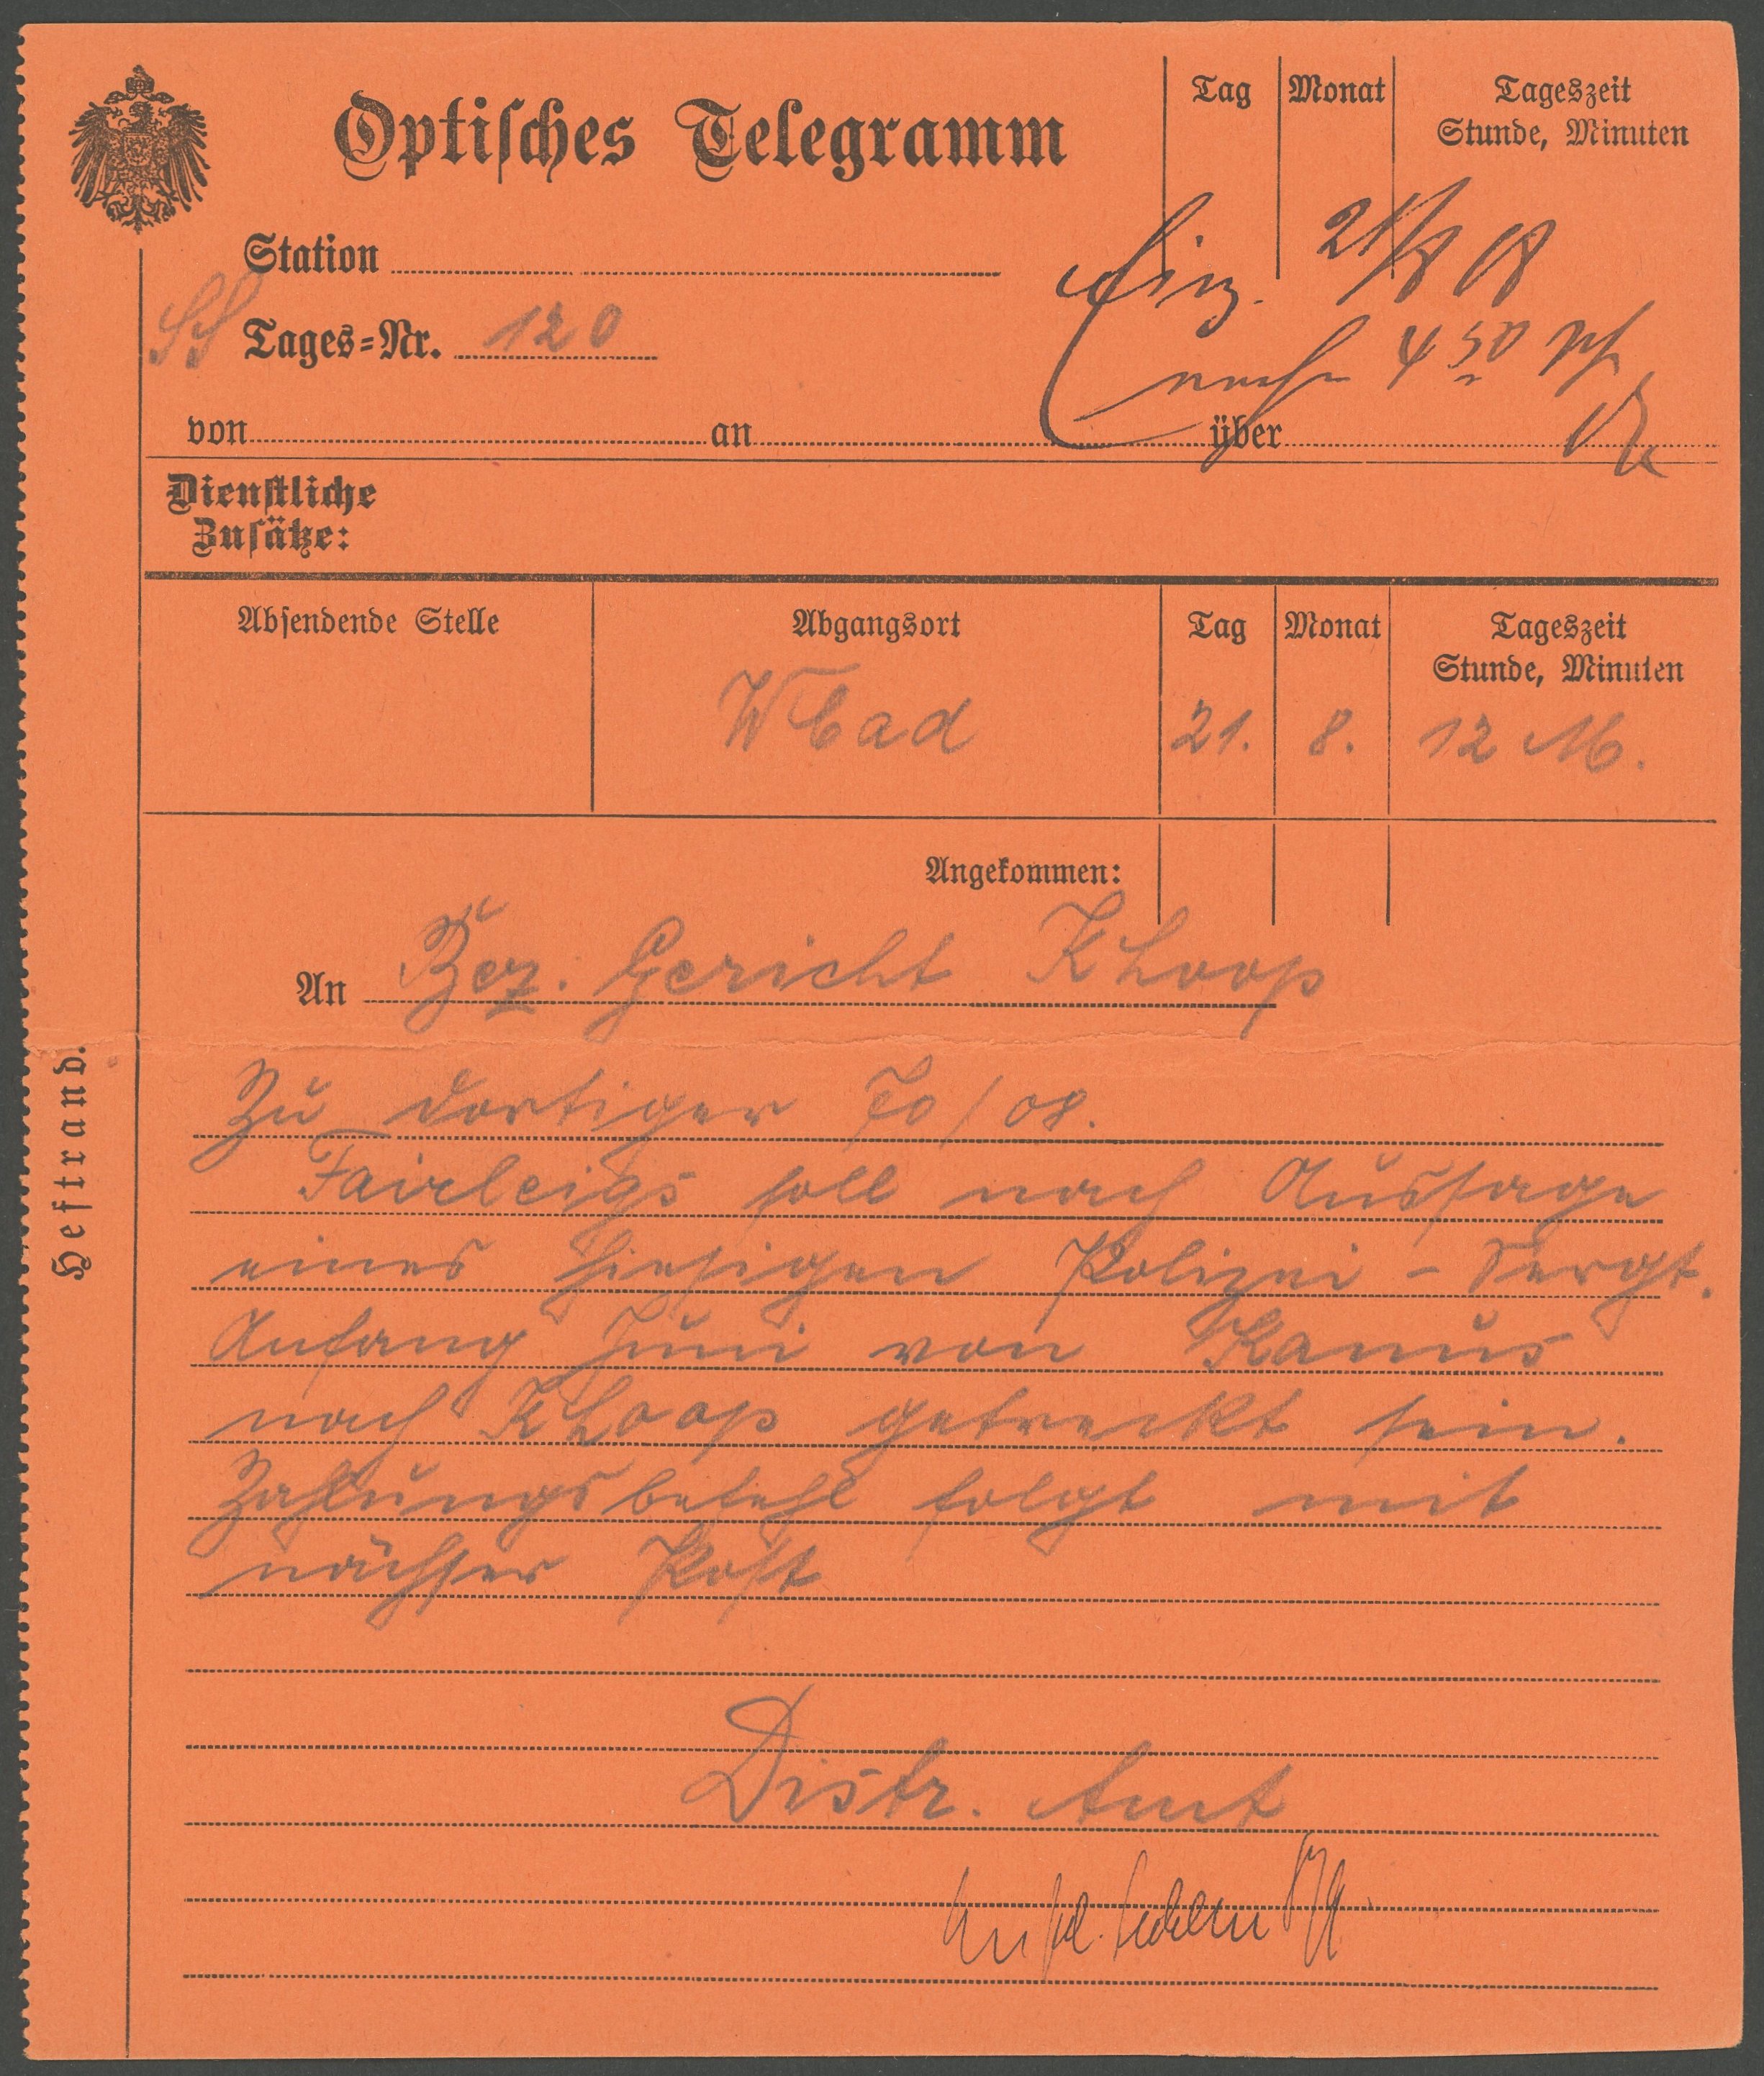 Optisches Telegramm
Tag Monat Tageszeit
Stunde, Minuten
Station
Eing. 21/8 08
SS Tages-Nr. 120
nachm 4 50
von an über
Dienstliche
Zusätze:
Absendende Stelle Abgangsort Tag Monat Tageszeit
Stunde, Minuten
WBad 21. 8. 12 M.
Angekommen:
An Bez. Gericht KHoop
Heftrand.
Zu dortiger 70/08.
Fairleigs soll nach Aussage
eines hiesigen Polizei-Sergt.
Anfang Juni von Kanus
nach KHoop getreckt sein.
Zahlungsbefehl folgt mit
nächster Post
Distr. Amt